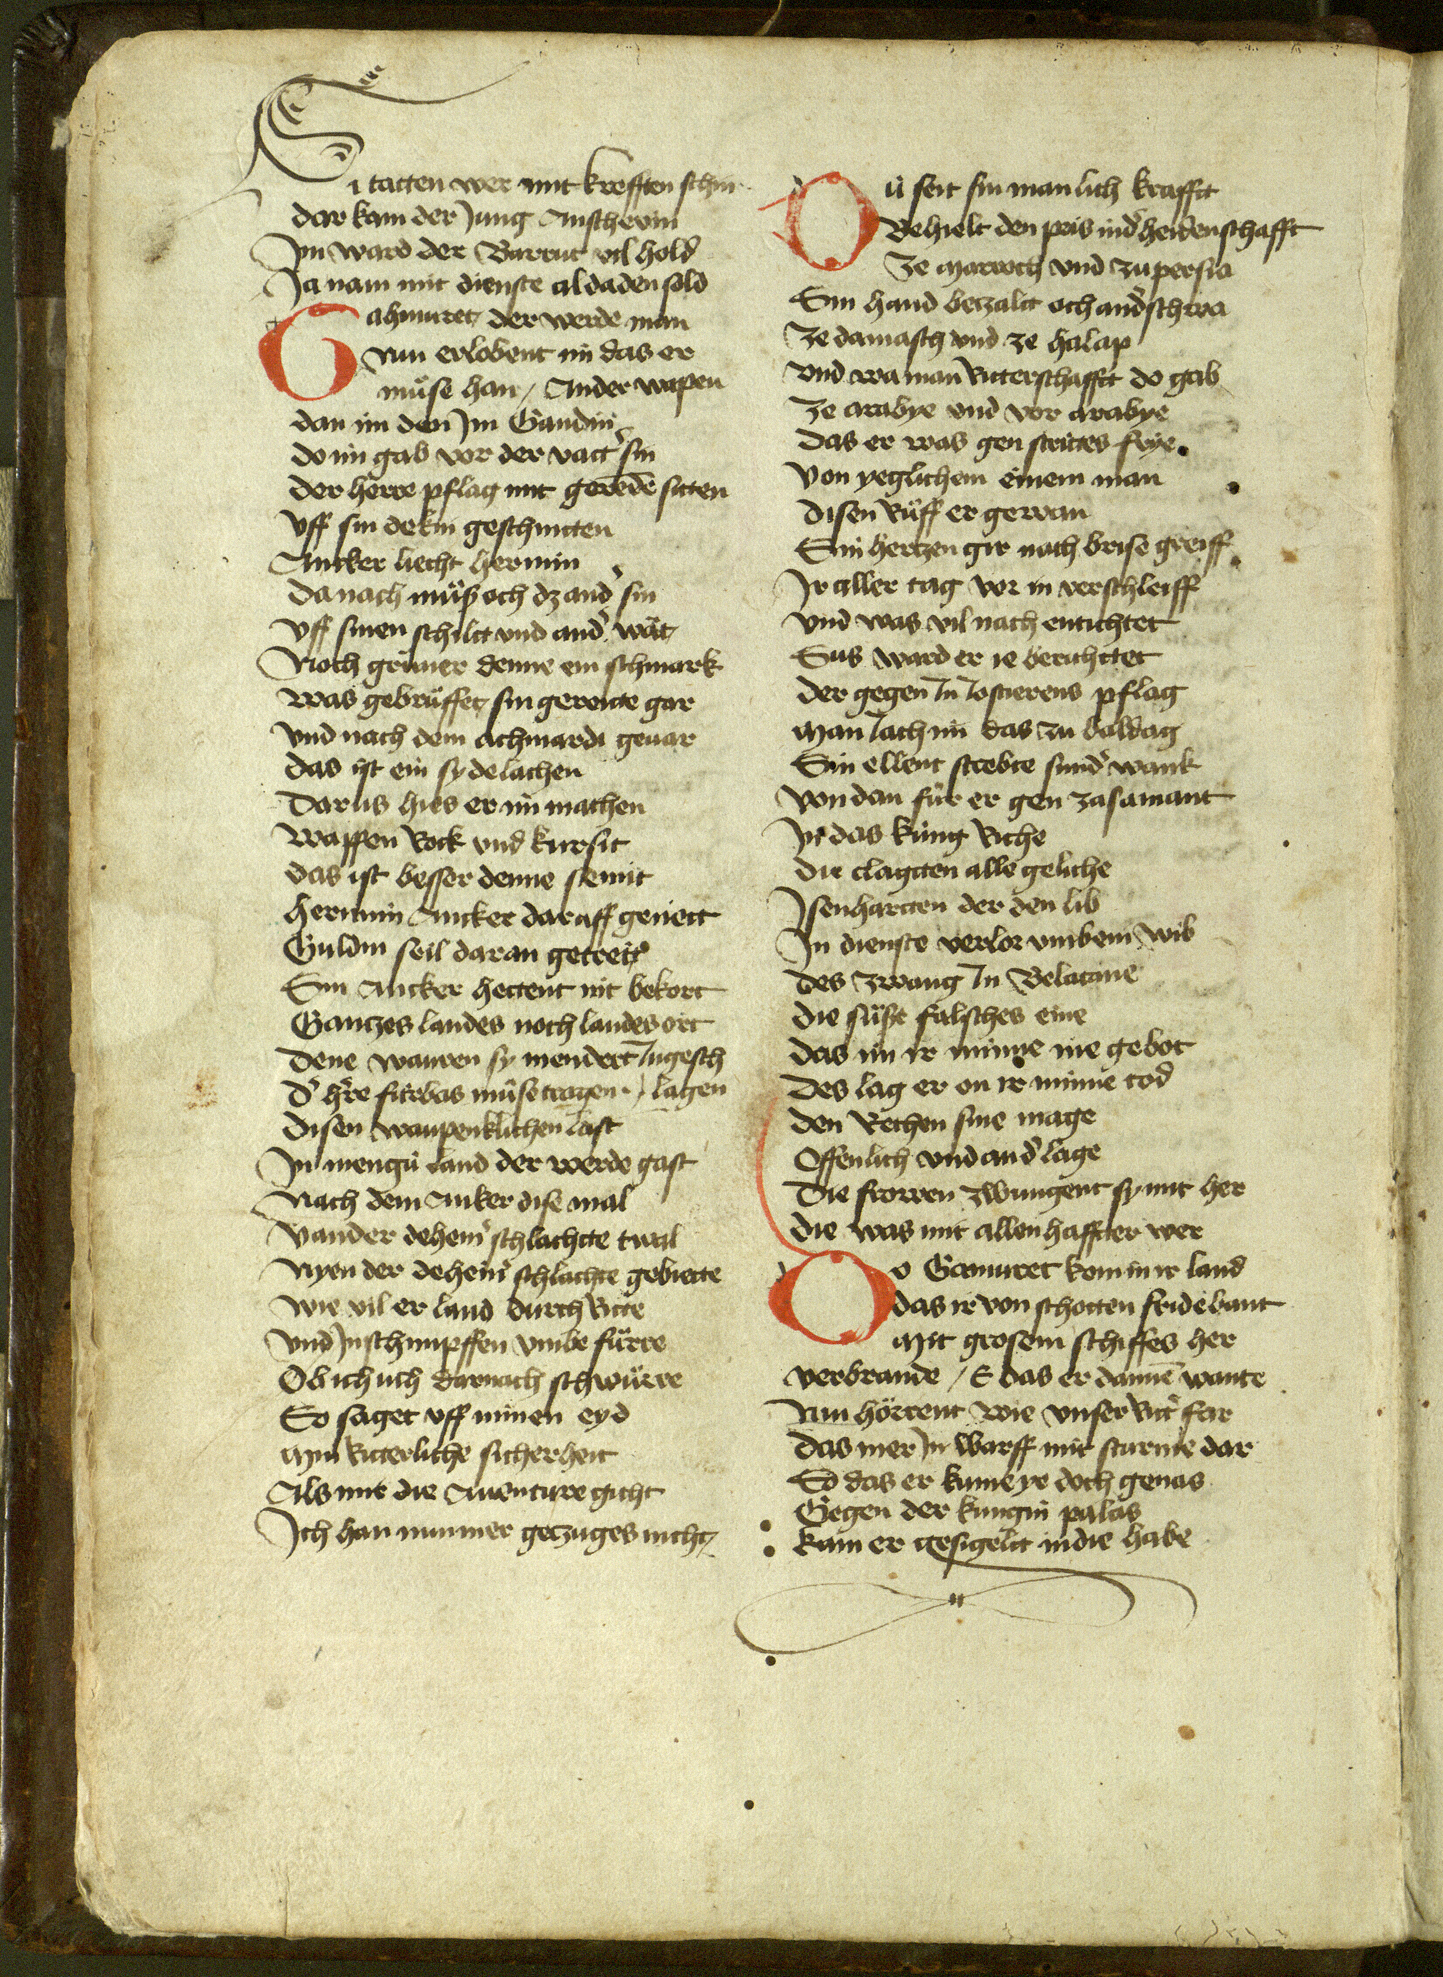 Si tatten wer mit krefften schin
dar kam der Jung Anschevin
Im ward der Barruc vil hold
Ja nam mit dienste aldaden sold
Gahmuret der werde man
Nun erlobent im das er
müse han / Ander wapen
dan im den Jm Gandin
do im gab vor der vatt' sin
der herre pflag mit gerende sitten
Vff sin dekin geschnitten
Ancker liecht hermin
Da nach müß och dz and' sin
Vff sinen schilt vnd and' wăt
Noch grüner denne ein schmark
Was gebrüffet sin gereitte gar
Vnd nach dem achmardi gevar
das ist ein sydelachen
Dar us hies er im machen
Wappen Rock vnd kursit
das ist besser denne siemit
Hermin Ancker daraff geneict
Guldin seil daran getreit
Sin Ancker hettent nit bekort
Gantzes landes noch landes ort
Dene wauren sy niendert Ingesch
d' h're fürbas müse tragen / lagen
Disen waupenklichen last
In mengü land der werde gast
Nach dem Anker dise mal
Vander dehein' schlachtte twal
Nyen der dehein' schlachte gebiette
Wie vil er land durch Ritte
Vnd Inschimpffen vmbe fürre
Ob ich üch darnach schwürre
So saget vff minen eyd
Min Ritterliche sicherheit
Als mir die Auenture gicht
Ich han nimmer getzuges nicht
Dü seit sin manlich krafft
Behielt den pris in d' heidenschafft
Ze Marroch vnd zu persia
Sin hand betzalt och and'schwa
Ze damasch vnd ze halap
Vnd wa man Ritterschafft do gab
Ze arabye vnd vor arabye
Das er was gen strittes frye
Von yeglichem einem man
disen Rüff er gewan
Sin hertzen gir nach brise greiff
Ir aller tag vor in verschleiff
Vnd was vil nach entichtet
Sus ward er ie berichttet
der gegen In Iostierens pflag
Man Iach im das zu baldag
Sin ellent strebte sund' wank
Von dan für er gen zasamant
In das küng Riche
die clagtten alle geliche
Isenhartten der den lib
In dienste verlor vmbein wib
des zwang In Belacane
die süße falsches eine
das im ir minne nie gebot
Des lag er on ir minne tod
den Rechen sine mage
Offenlich vnd an d' lage
Die frowen zwungent sy mit her
die was mit allenhaffter wer
Do Gamuret kom in ir land
das ir von schotten fridebant
Mit grosem schiffes her
verbrande / E das er dannē wante
Nun hörtent wie vnser Ritt' far
das mer In warff mit sturme dar
So das er kume ye doch genas
Gegen der kungin palas
kam er gesigelt in die habe